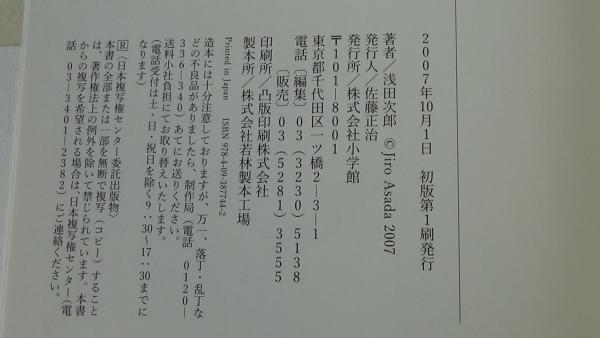 2007年10月1日　初版第1刷発行
著者／浅田次郎　©Jiro Asada 2007
発行人／佐藤正治
発行所／株式会社小学館
〒101-8001
東京都千代田区一ツ橋2-3-1
電話〔編集〕03（3230）5138
〔販売〕03（5281）3555
印刷所／凸版印刷株式会社
製本所／株式会社若林製本工場
Printed in Japan　ISBN 978-4-09-387744-2
造本には十分注意しておりますが、万一、落丁・乱丁な
どの不良品がありましたら、制作局（電話　0120-
336-340）あてにお送りください。
送料小社負担にてお取り替えいたします。
（電話受付は土・日・祝日を除く9：30〜17：30までに
なります）
Ⓡ〈日本複写権センター委託出版物〉
本書の全部または一部を無断で複写（コピー）すること
は、著作権法上の例外を除いて禁じられています。本書
からの複写を希望される場合は、日本複写権センター（電
話　03-3401-2382）にご連絡ください。